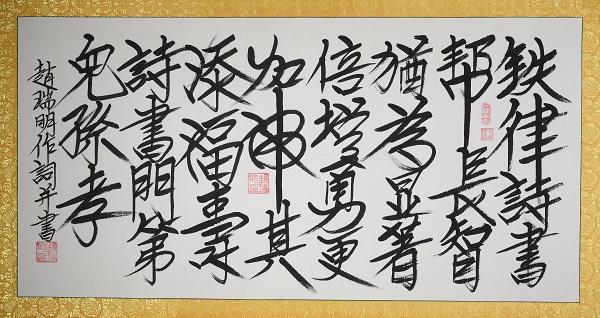 铁律詩書
帮長智
猶為显著
倍增勇更
加神其
添福寿
詩書門第
兒孫孝
趙瑞明作詞并書